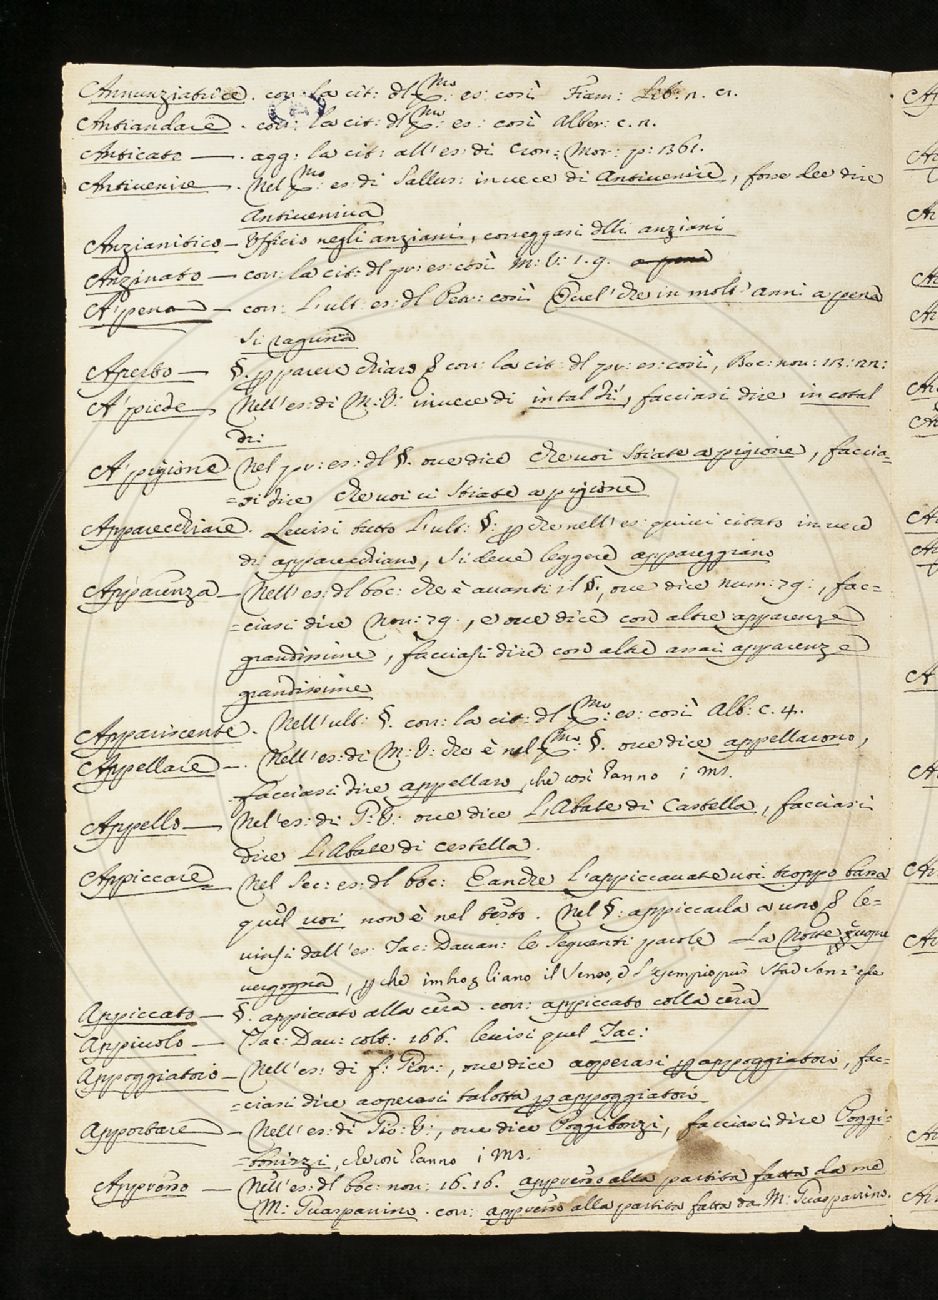 Annunziatrice. con: la cit: dl Mo: es: così Fiam: Lib: n. cr.
Antiandare. con: la cit: dl Mo: es: così Alber: c. n.
Anticato — . agg: la cit: all'es: di Cron: Mor: p: 1361.
Antivenire. Nel Mo: es: di Sallus: invece di Antivenire, forse lee dire
Antiveniva
Anzianitico — Ufficio negli anziani, correggasi dlli anziani
Anzinato — con: la cit: dl pr: es: così M: V: 1. 9. a pena
A' pena — con: l'ult: es: dl Petr: così Quel' che in molt' anni a pena
Si raguna
Aperto — §. p parere chiaro con: la cit: dl pr: es: così, Boc: nov: 13: 22:
A' piede Nell'es: di M: V: invece di in tal dì, facciasi dire in cotal
dì:
A' pigione Nel pr: es: dl §. ove dice che voi stiate a pigione, faccia=
=si dice che voi ci stiate a pigione
Apparecchiare. Levisi tutto l'ult: §: p che nell'es: quivi citato invece
di apparecchiano, si deve leggere appareggiano
Apparenza — Nell'es: dl boc: che è avanti il §, ove dice num: 79:, fac=
=ciasi dire Nov: 79., e ove dice con altre apparenze
grandissime, facciasi dire con altre assai apparenze
grandissime
Appariscente. Nell'ult: §. con: la cit: dl Mo: es: così Alb: c. 4.
Appellare —. Nell'es: di M: V: che è nel Mo: §. ove dice appellarono,
facciasi dire appellaro, che così hanno i ms.
Appello — Nel'es: di G: V: ove dice L'Abate di Castella, facciasi
dire L'Abate di cestella.
Appiccare — Nel sec: es: dl boc: E anche l'appiccavate voi troppo bassa
quel voi non è nel testo. Nel §: appiccarla a uno le=
vinsi dall'es: Tac: Davan: le seguenti parole La Notte
vergogna, p che imbrogliano il senso, e l'esempio può
Appiccato — §. appiccato alla cera. con: appiccato colla cera
Appicolo — Tac: Dav: colt: 166. levisi quel Tac:
Appoggiatoio — Nell'es: di f: Gior:, ove dice aoperasi p appoggiatoio, fac=
=ciasi dire aoperasi talotta p appoggiatoio
Apportare — Nell'es: di Gio: V:, ove dice Poggibonzi, facciasi dire Poggi=
=bonizzi, che così hanno i ms.
Appresso — Nell'es: dl boc: nov: 16. 16. appresso alla partita fatta da me
M: Guasparrino. con: appresso alla partita fatta da M: Guasparrino.